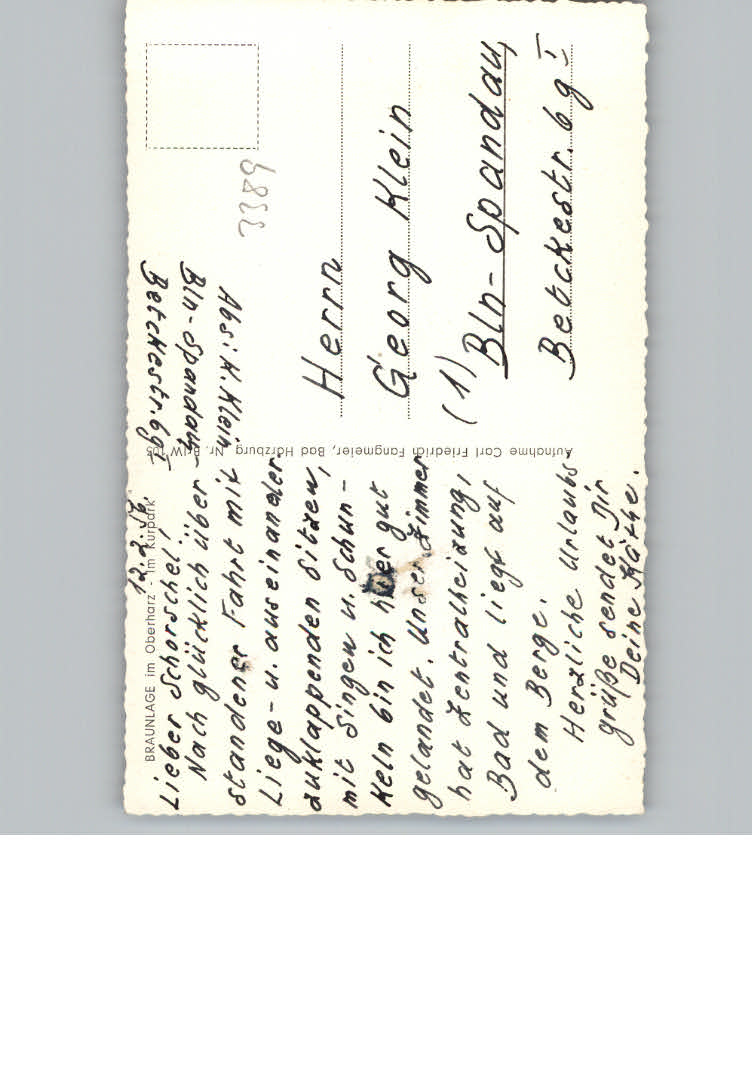 BRAUNLAGE im Oberharz - Im Kurpark
12.2.59
Lieber Schorschel!
Nach glücklich über-
standener Fahrt mit
Liege- u. auseinander
zuklappenden Sitzen,
mit Singen u. Schun-
keln bin ich hier gut
gelandet. Unser Zimmer
hat Zentralheizung,
Bad und liegt auf
dem Berge.
Herzliche Urlaubs
grüße sendet Dir
Deine Käthe.
Aufnahme Carl Friedrich Fangmeier, Bad Harzburg Nr.
Abs: K. Klein
Bln-Spandau
Betckestr. 6g I
3389
Herrn
Georg Klein
(1)
Bln-Spandau
Betckestr. 6g I